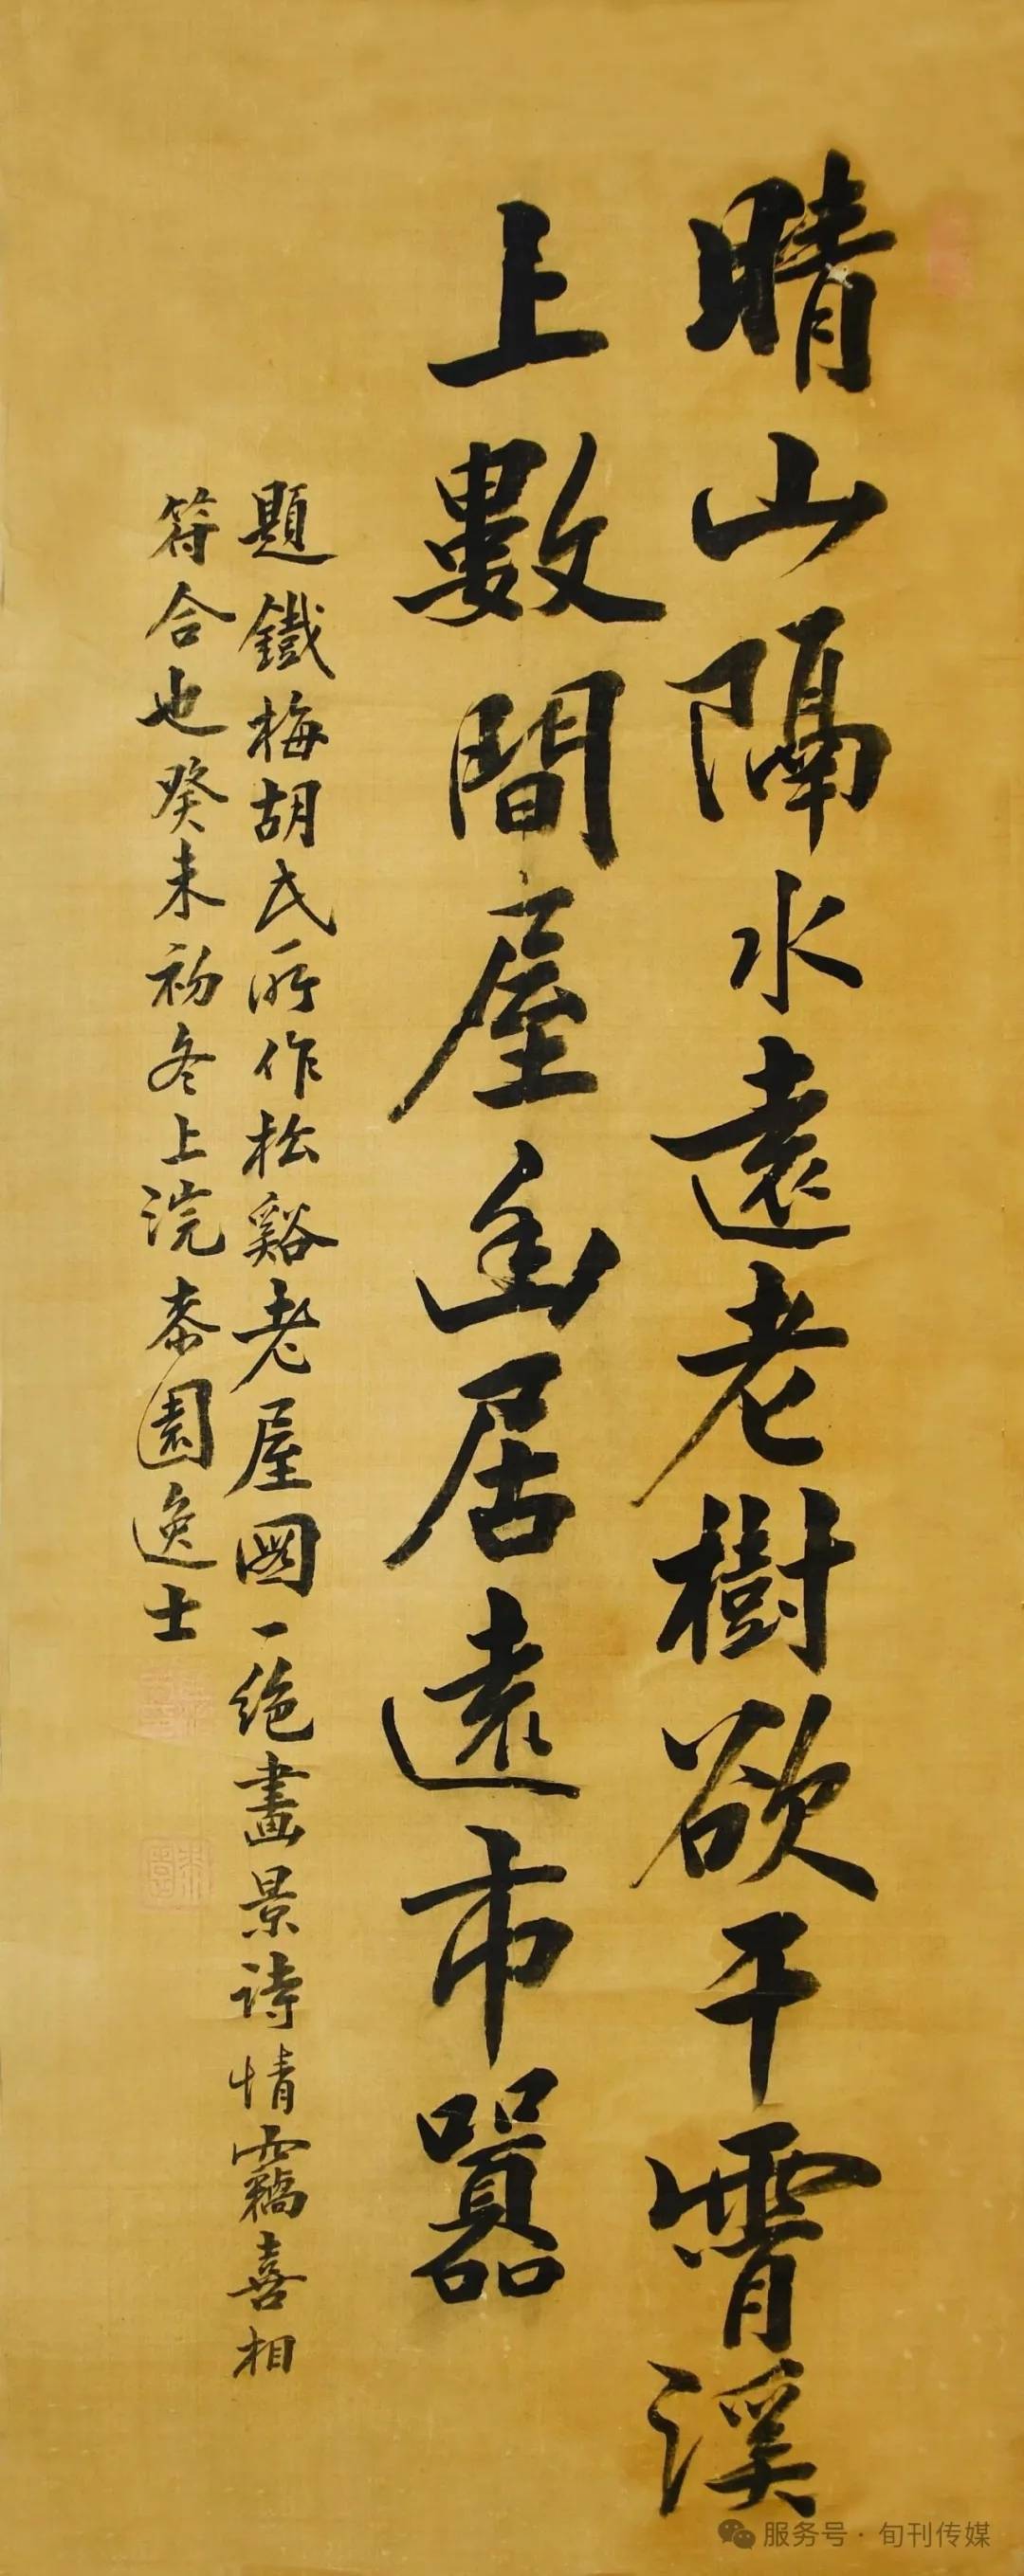 晴山隔水遠老樹欲干霄溪
上數間屋幽居遠市囂
題鐵梅胡氏所作松谿老屋圖一絶畫景詩情竊喜相
符合也癸未初冬上浣泰園逸士
服务号·旬刊传媒